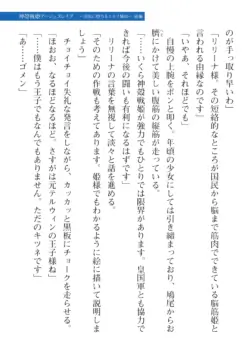 神殻戦姫アージュスレイブ ～淫獄に堕ちる王女と騎士～ 前編
のが手っ取り早いわ」
「リリーナ様、その短絡的なところが国民から脳まで筋肉でできている脳筋姫と
呼ばれる由縁なのです」
「いやあ、それほどでも」
自慢の上腕をポンと叩く。年頃の少女にしては引き締まっており、鳩尾からお
臍にかけて美しい腹筋の縦筋が走っている。
「……いくら神殻戦姫が強力でもひとりでは限界があります。皇国軍とも協力で
きれば今後の闘いも有利になるはずです」
リリーナの言葉を無視して淡々と話を進める。
「そのための作戦もあります。姫様でもわかるように絵に描いて説明しま
しょう」
チョイチョイ失礼な発言をしながら、カッカッと黒板にチョークを走らせる。
「ほおお、なるほどなるほど。さすがは元テルウィンの王子様ね」
「……僕はもう王子でもなんでもありません。ただのキツネです」
「あ……ゴメン」